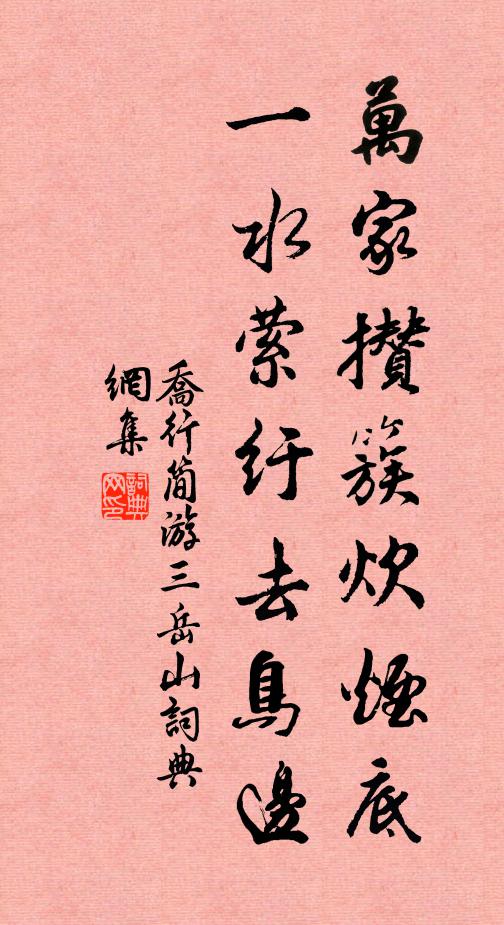 萬家攢簇炊煙底
一水縈紆去鳥邊
喬行簡游三岳山詞典
網集
詞典
网印